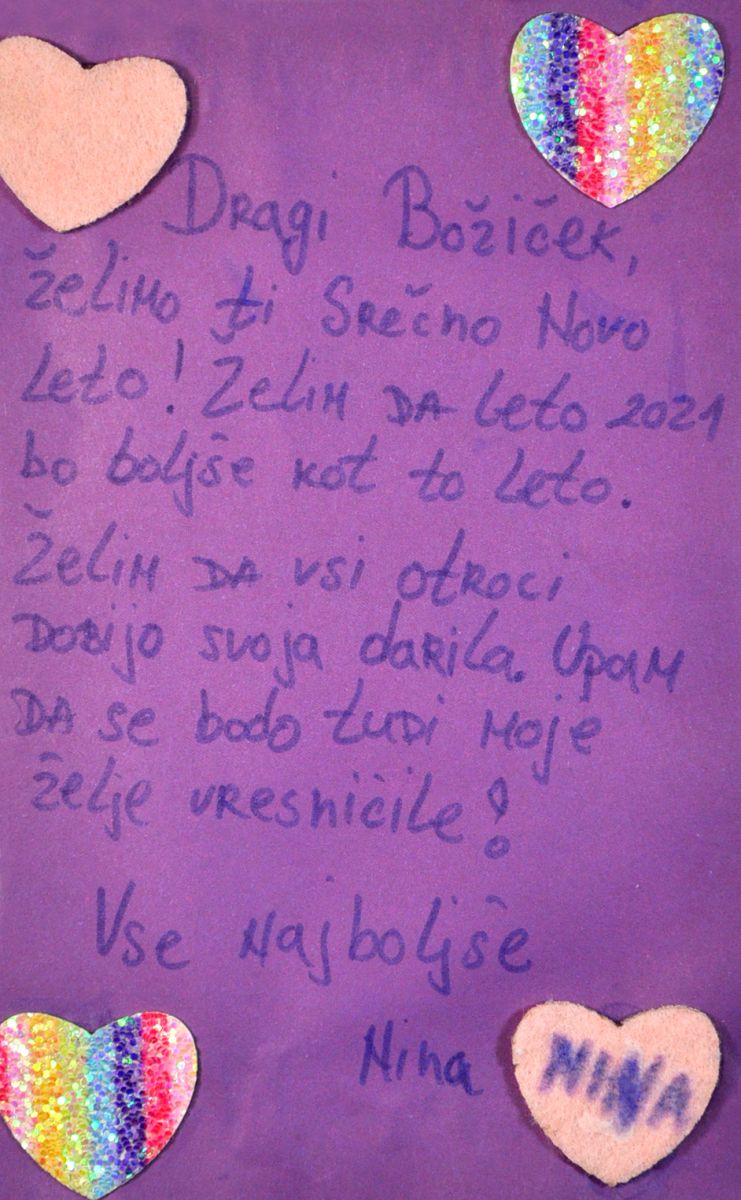 Dragi Božiček,
želimo ti Srečno Novo
Leto! Želim da leto 2021
bo boljše kot to leto.
Želim da vsi otroci
dobijo svoja darila. Upam
da se bodo tudi moje
želje vresničile!
Vse najboljše
Nina
NINA